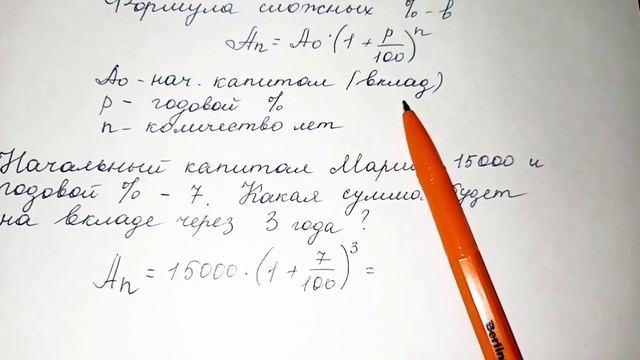 Формула сложных %-в
Aₙ = A₀ · (1 + p/100)ⁿ
A₀ - нач. капитал (вклад)
p - годовой %
n - количество лет
Начальный капитал 15000 и
годовой % - 7. Какая сумма будет
на вкладе через 3 года?
Aₙ = 15000 · (1 + 7/100)³ =
Berlin